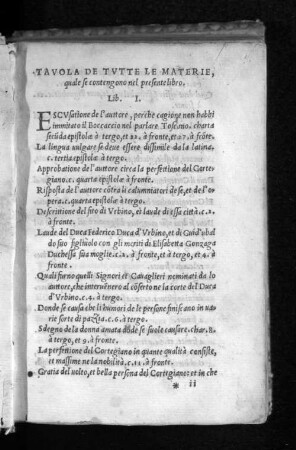 TAVOLA DE TVTTE LE MATERIE,
quale se contengono nel presente libro.
Lib. I.
ESCVsatione de l'auttore, perche cagione non habbi
immitato il Boccaccio nel parlare Toscano. charta
secūda epistola à tergo, et 22. à fronte, et 27. à frōte.
La lingua vulgare se deue essere dissimile da la latina.
c. tertia epistola à tergo.
Approbatione de l'auttore circa la perfettione del Corte
giano. c. quarta epistola à fronte.
Risposta de l'auttore cōtra li calumniatori de se, et de l'o
pera. c. quarta epistola à tergo.
Descrittione del sito di Vrbino, et laude di essa città. c. 2.
à fronte.
Laude del Duca Federico Duca d'Vrbino, et di Guid'ubal
do suo figliuolo con gli meriti di Elisabetta Gonzaga
Duchessa sua moglie. c. 2. à fronte, et à tergo, et 4. à
fronte.
Quali furno quelli Signori et Cauaglieri nominati da lo
auttore, che interuenero al cōserto ne la corte del Duca
d'Vrbino. c. 4. à tergo.
Donde se causa che li humori de le persone finiscano in va
rie sorte di pazzia. c. 6. à tergo.
Sdegno de la donna amata dōde se suole causare. char. 8.
à tergo, et 9. à fronte.
La perfettione del Cortegiano in quante qualità consiste,
et massime ne la nobilità. c. 11. à fronte.
Gratia del uolto, et bella persona del Cortegiano: et in che
* ii